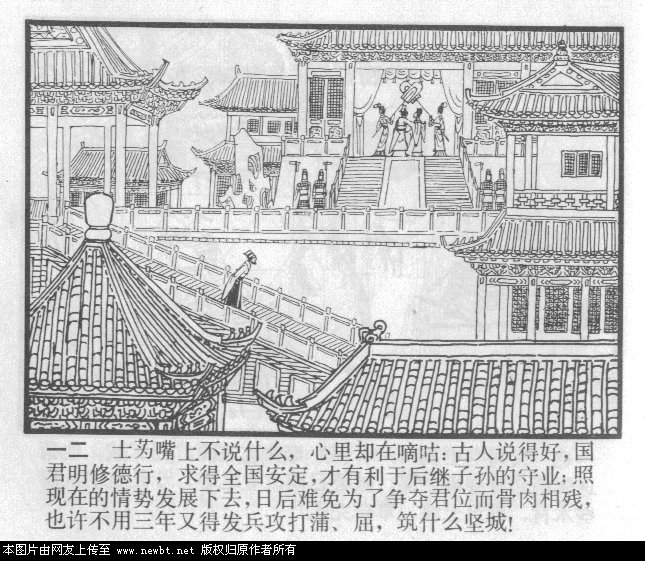 一二 士艻嘴上不说什么，心里却在嘀咕：古人说得好，国
君明修德行，求得全国安定，才有利于后继子孙的守业；照
现在的情势发展下去，日后难免为了争夺君位而骨肉相残，
也许不用三年又得发兵攻打蒲、屈，筑什么坚城！
本图片由网友上传至 www.newbt.net 版权归原作者所有